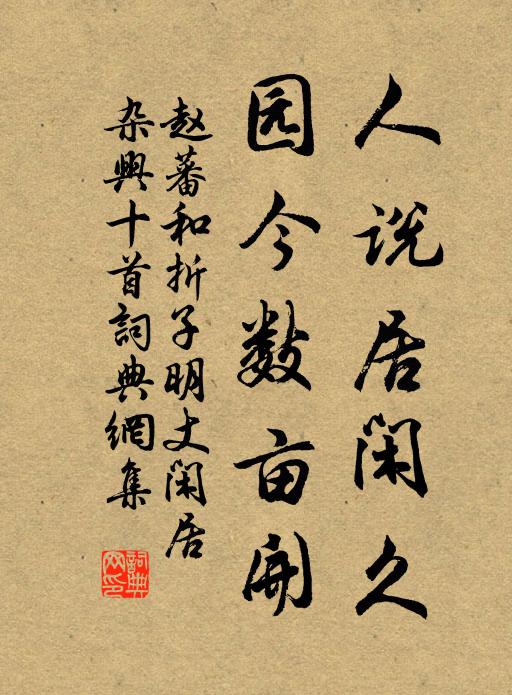 人说居闲久
园今数亩开
赵蕃和折子明丈闲居
杂興十首詞典網集
詞典网印